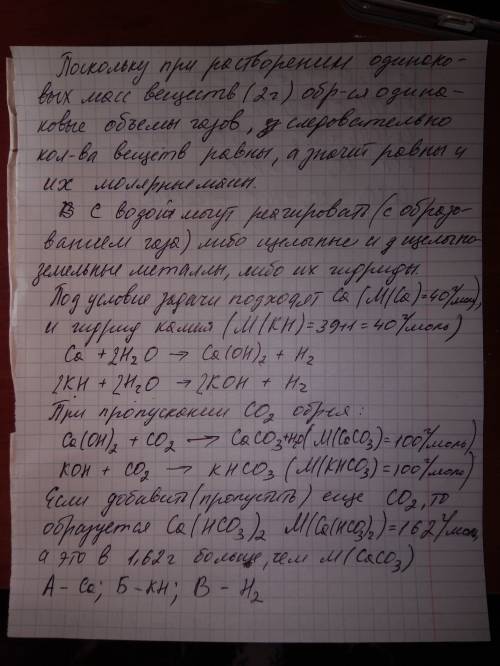 Поскольку при растворении одинако-
вых масс веществ (2г) обр-ся одина-
ковые объемы газов, следовательно
кол-ва веществ равны, а значит равны и
их молярные массы.
С водой могут реагировать (с образо-
ванием газа) либо щелочные и щелочно-
земельные металлы, либо их гидриды.
Под условие задачи подходят Ca (M(Ca)=40г/моль),
и гидрид калия (M(KH)=39+1=40г/моль)
Ca + 2H₂O → Ca(OH)₂ + H₂
2KH + 2H₂O → 2KOH + H₂
При пропускании CO₂ обр-ся:
Ca(OH)₂ + CO₂ → CaCO₃+H₂O (M(CaCO₃)=100г/моль)
KOH + CO₂ → KHCO₃ (M(KHCO₃)=100г/моль)
Если добавить (пропустить) еще CO₂, то
образуется Ca(HCO₃)₂ M(Ca(HCO₃)₂)=162г/моль,
а это в 1,62г больше, чем M(CaCO₃)
А - Ca; Б - KH; В - H₂